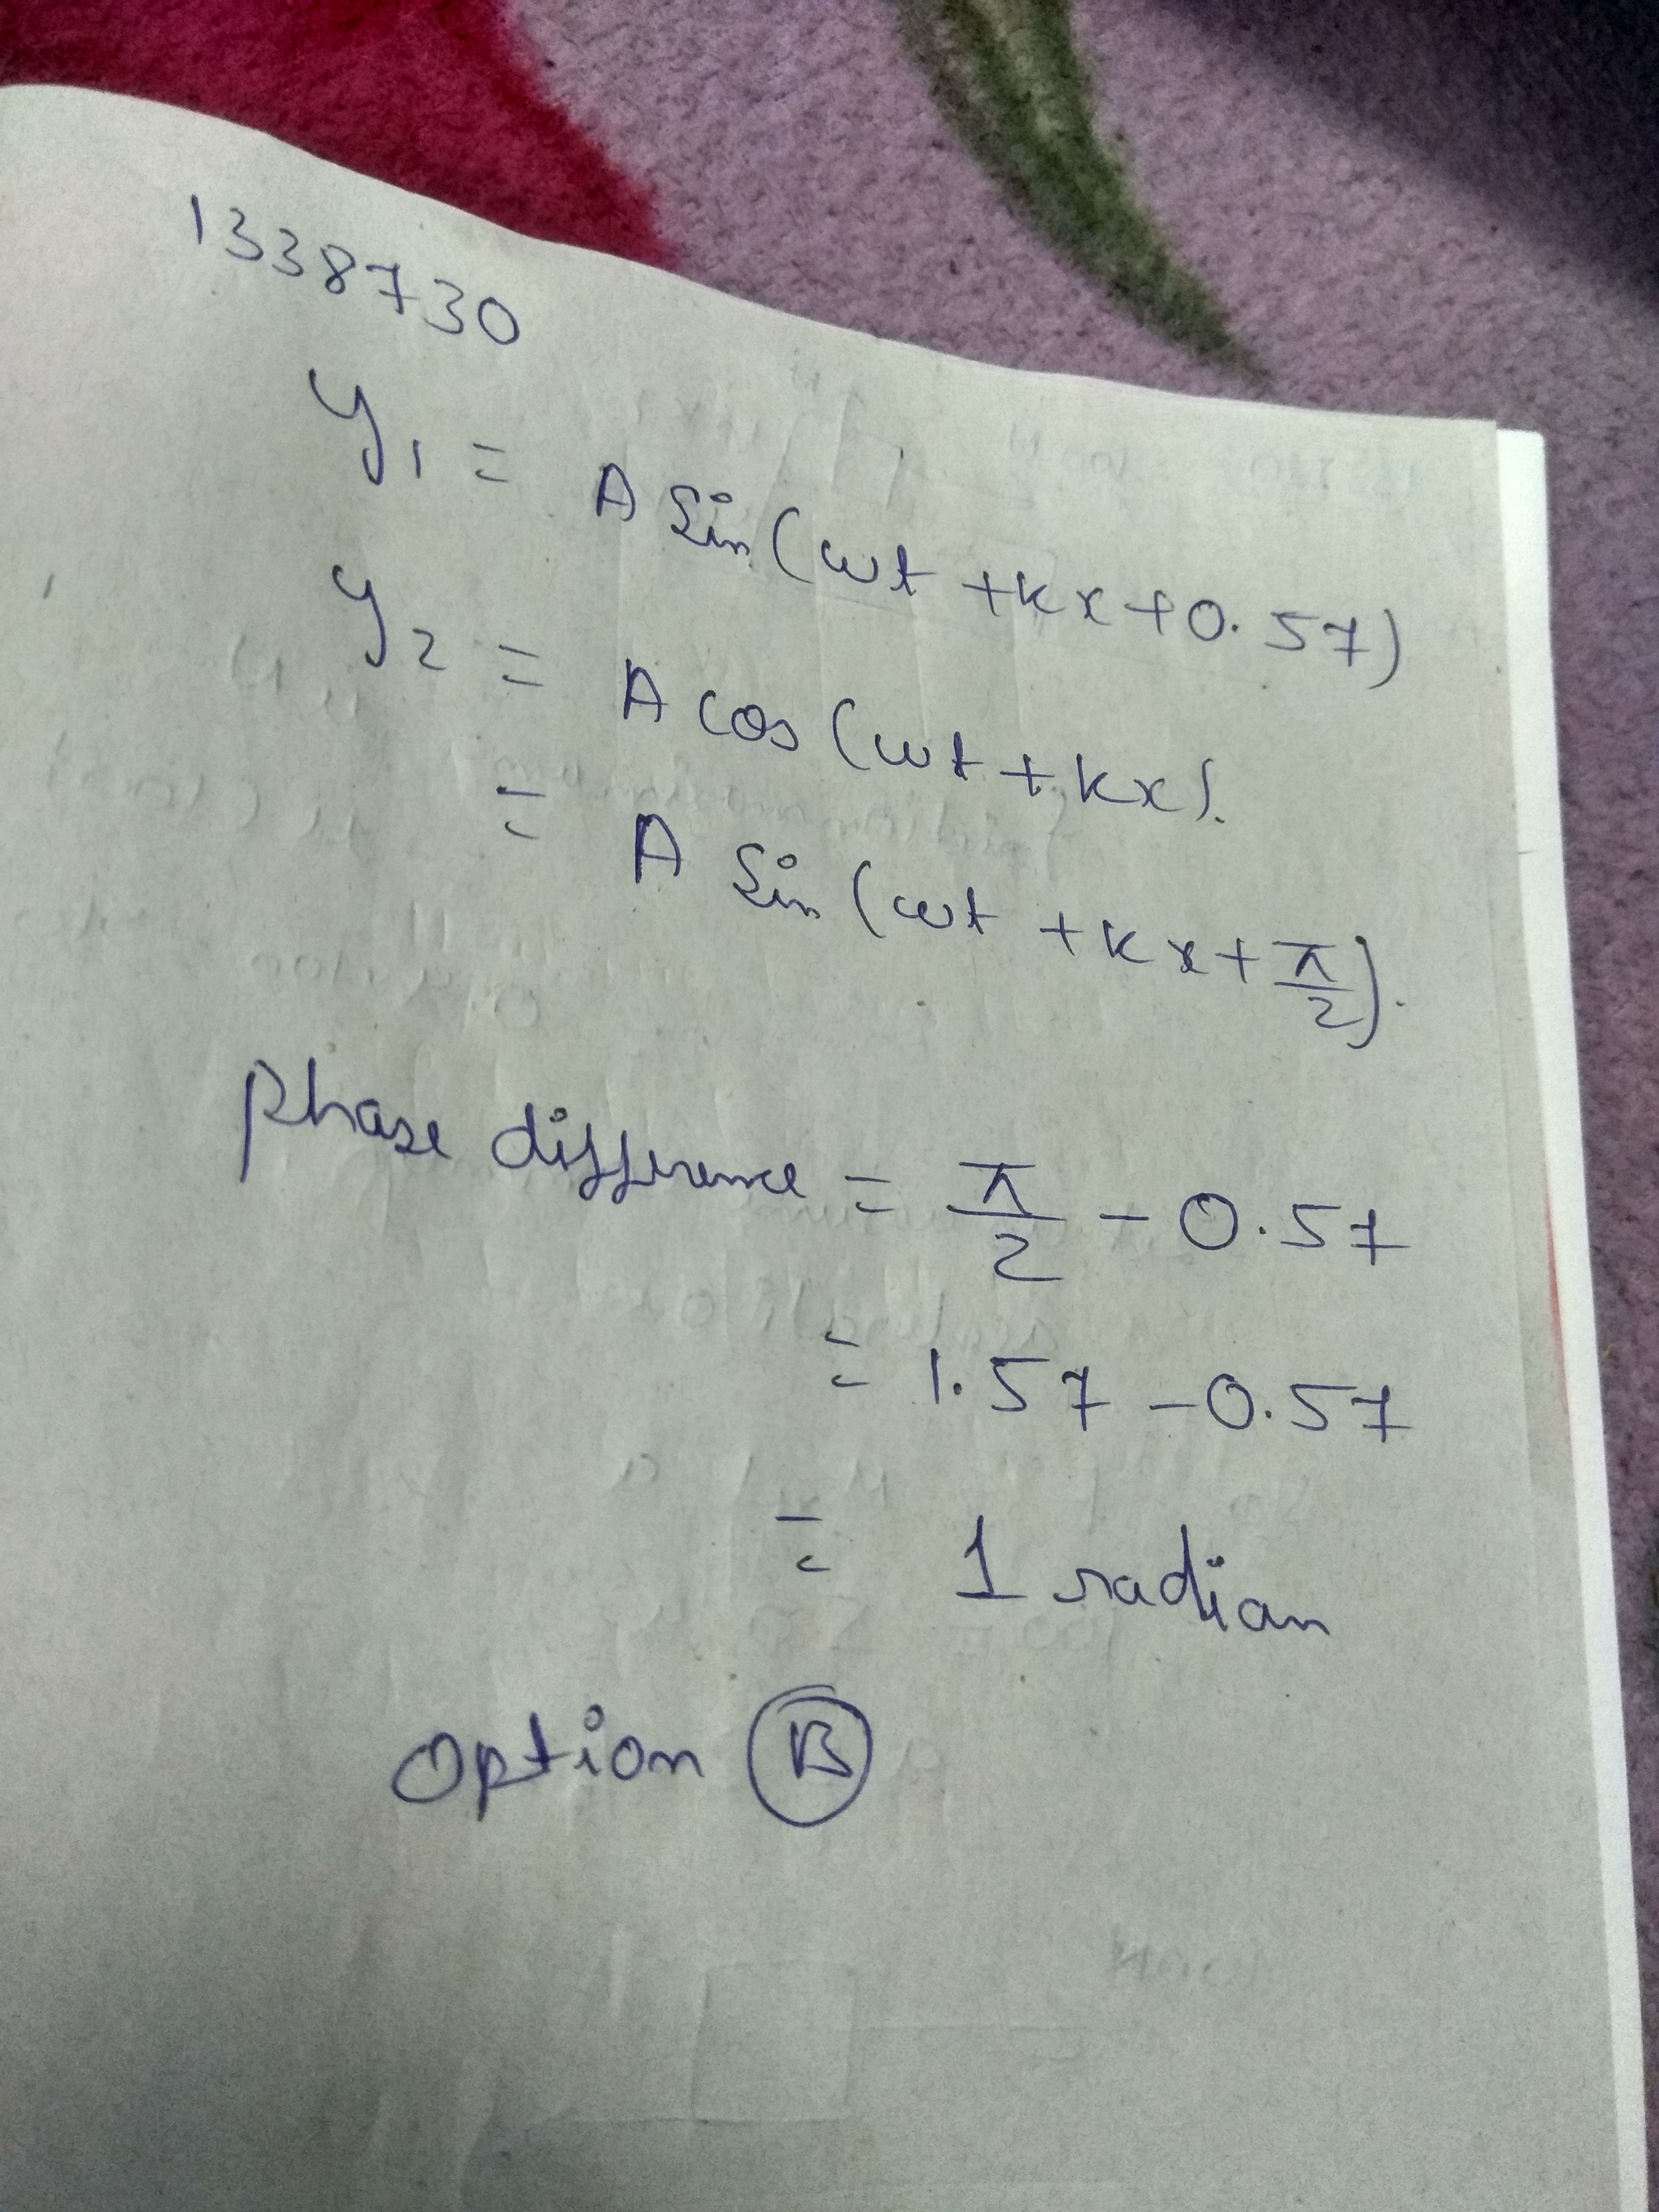 1338730
y₁ = A Sin(ωt + kx + 0.57)
y₂ = A cos(ωt + kx).
= A Sin(ωt + kx + π/2).
phase difference = π/2 - 0.57
= 1.57 - 0.57
= 1 radian
option B